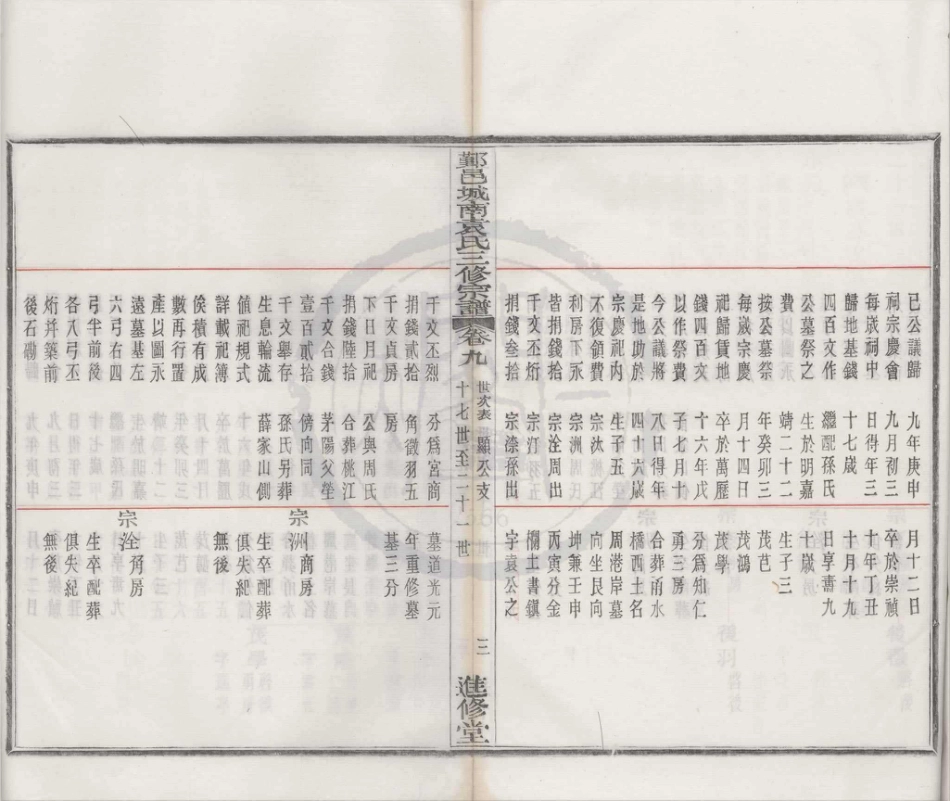 已公議歸
祠宗慶會
每歲祠中
歸地基錢
四百文作
公墓祭之
費
按公墓祭
每歲宗慶
祀賃貲地
錢四百文
以作祭費
今公議將
是地助於
宗慶祀內
不復領費
利房下永
皆捐錢拾
千文丕烆
捐錢叁拾
九年庚申
九月初三
日得年三
十七歲
繼配孫氏
生於明嘉
靖二十二
年癸卯三
月十四日
卒於萬曆
十六年戊
子七月十
八日得年
四十六歲
生子五
宗汰
宗洲
宗洤周出
宗汀
宗漆孫出
月十二日
卒於崇禎
十年丁丑
十月十九
日享壽九
十歲
生子三
茂芑
茂鴻
茂學
分爲知仁
勇三房
合葬甬水
橋西土名
周港岸墓
向坐艮向
坤兼壬申
丙寅分金
欄土書鎮
字袁公之
鄞邑城南袁氏三修宗譜
卷九
世次表 顯丕支
十七世至二十一世
三
進修堂
千文丕烈
捐錢貳拾
千文貞房
下日月祀
捐錢陸拾
千文合錢
壹百貳拾
千文舉存
生息輪流
值祀規式
詳載祀簿
俟積有成
數再行置
產以圖永
遠墓基左
六弓右四
弓半前後
各八弓丕
烆幷築前
後石磡
分爲宮商
角徵羽五
房
公與周氏
合葬桃江
茅陽父塋
傍向同
孫氏另葬
薛家山側
墓道光元
年重修墓
基三分
宗洲商房
生卒配葬
俱失紀
無後
宗洤角房
生卒配葬
俱失紀
無後